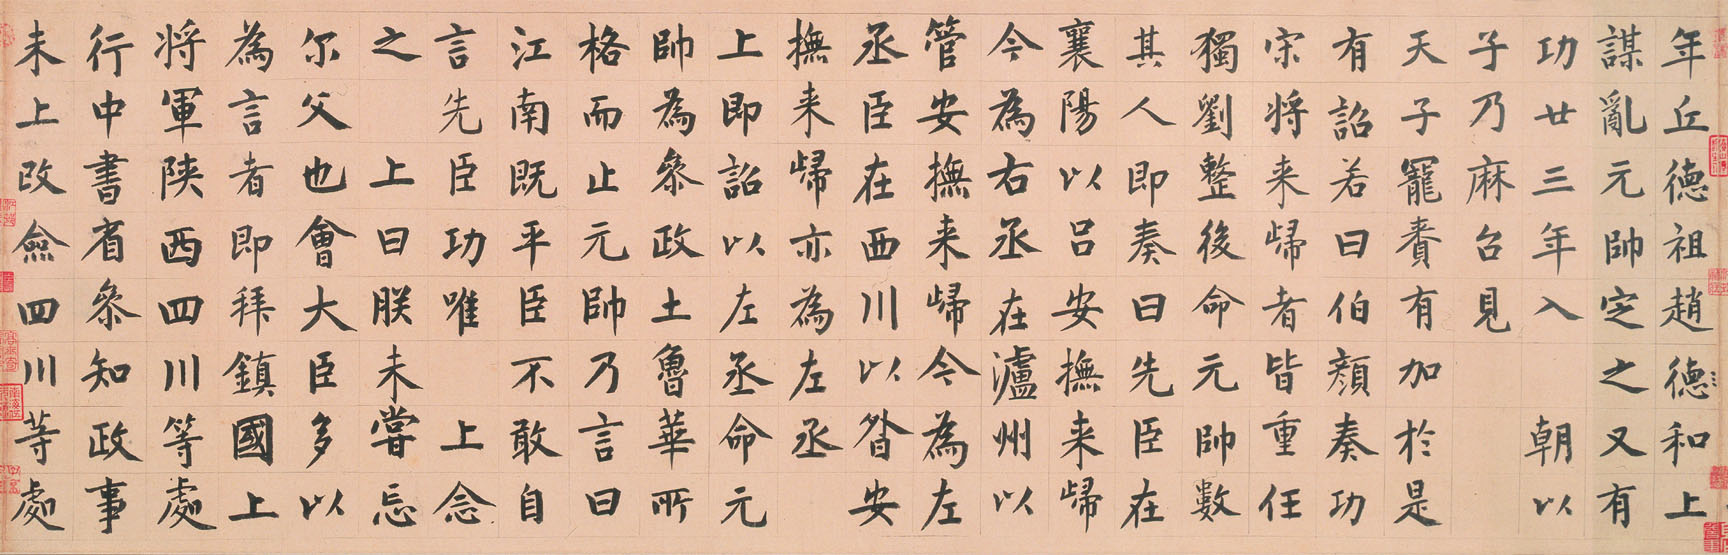 年丘德祖趙德和上
謀亂元帥定之又有
功廿三年入朝以
子乃麻台見
天子寵賚有加於是
有詔若曰伯顏奏功
宋将来歸者皆重任
獨劉整後命元帥數
其人即奏曰先臣在
襄陽以吕安撫来歸
今為右丞在瀘州以
管安撫来歸今為左
丞臣在西川以昝安
撫来歸亦為左丞
上即詔以左丞命元
帥為叅政土魯華所
格而止元帥乃言曰
江南既平臣不敢自
言先臣功唯上念
之上曰朕未嘗忘
尔父也會大臣多以
為言者即拜鎮國上
将軍陕西四川等處
行中書省叅知政事
未上改僉四川等處